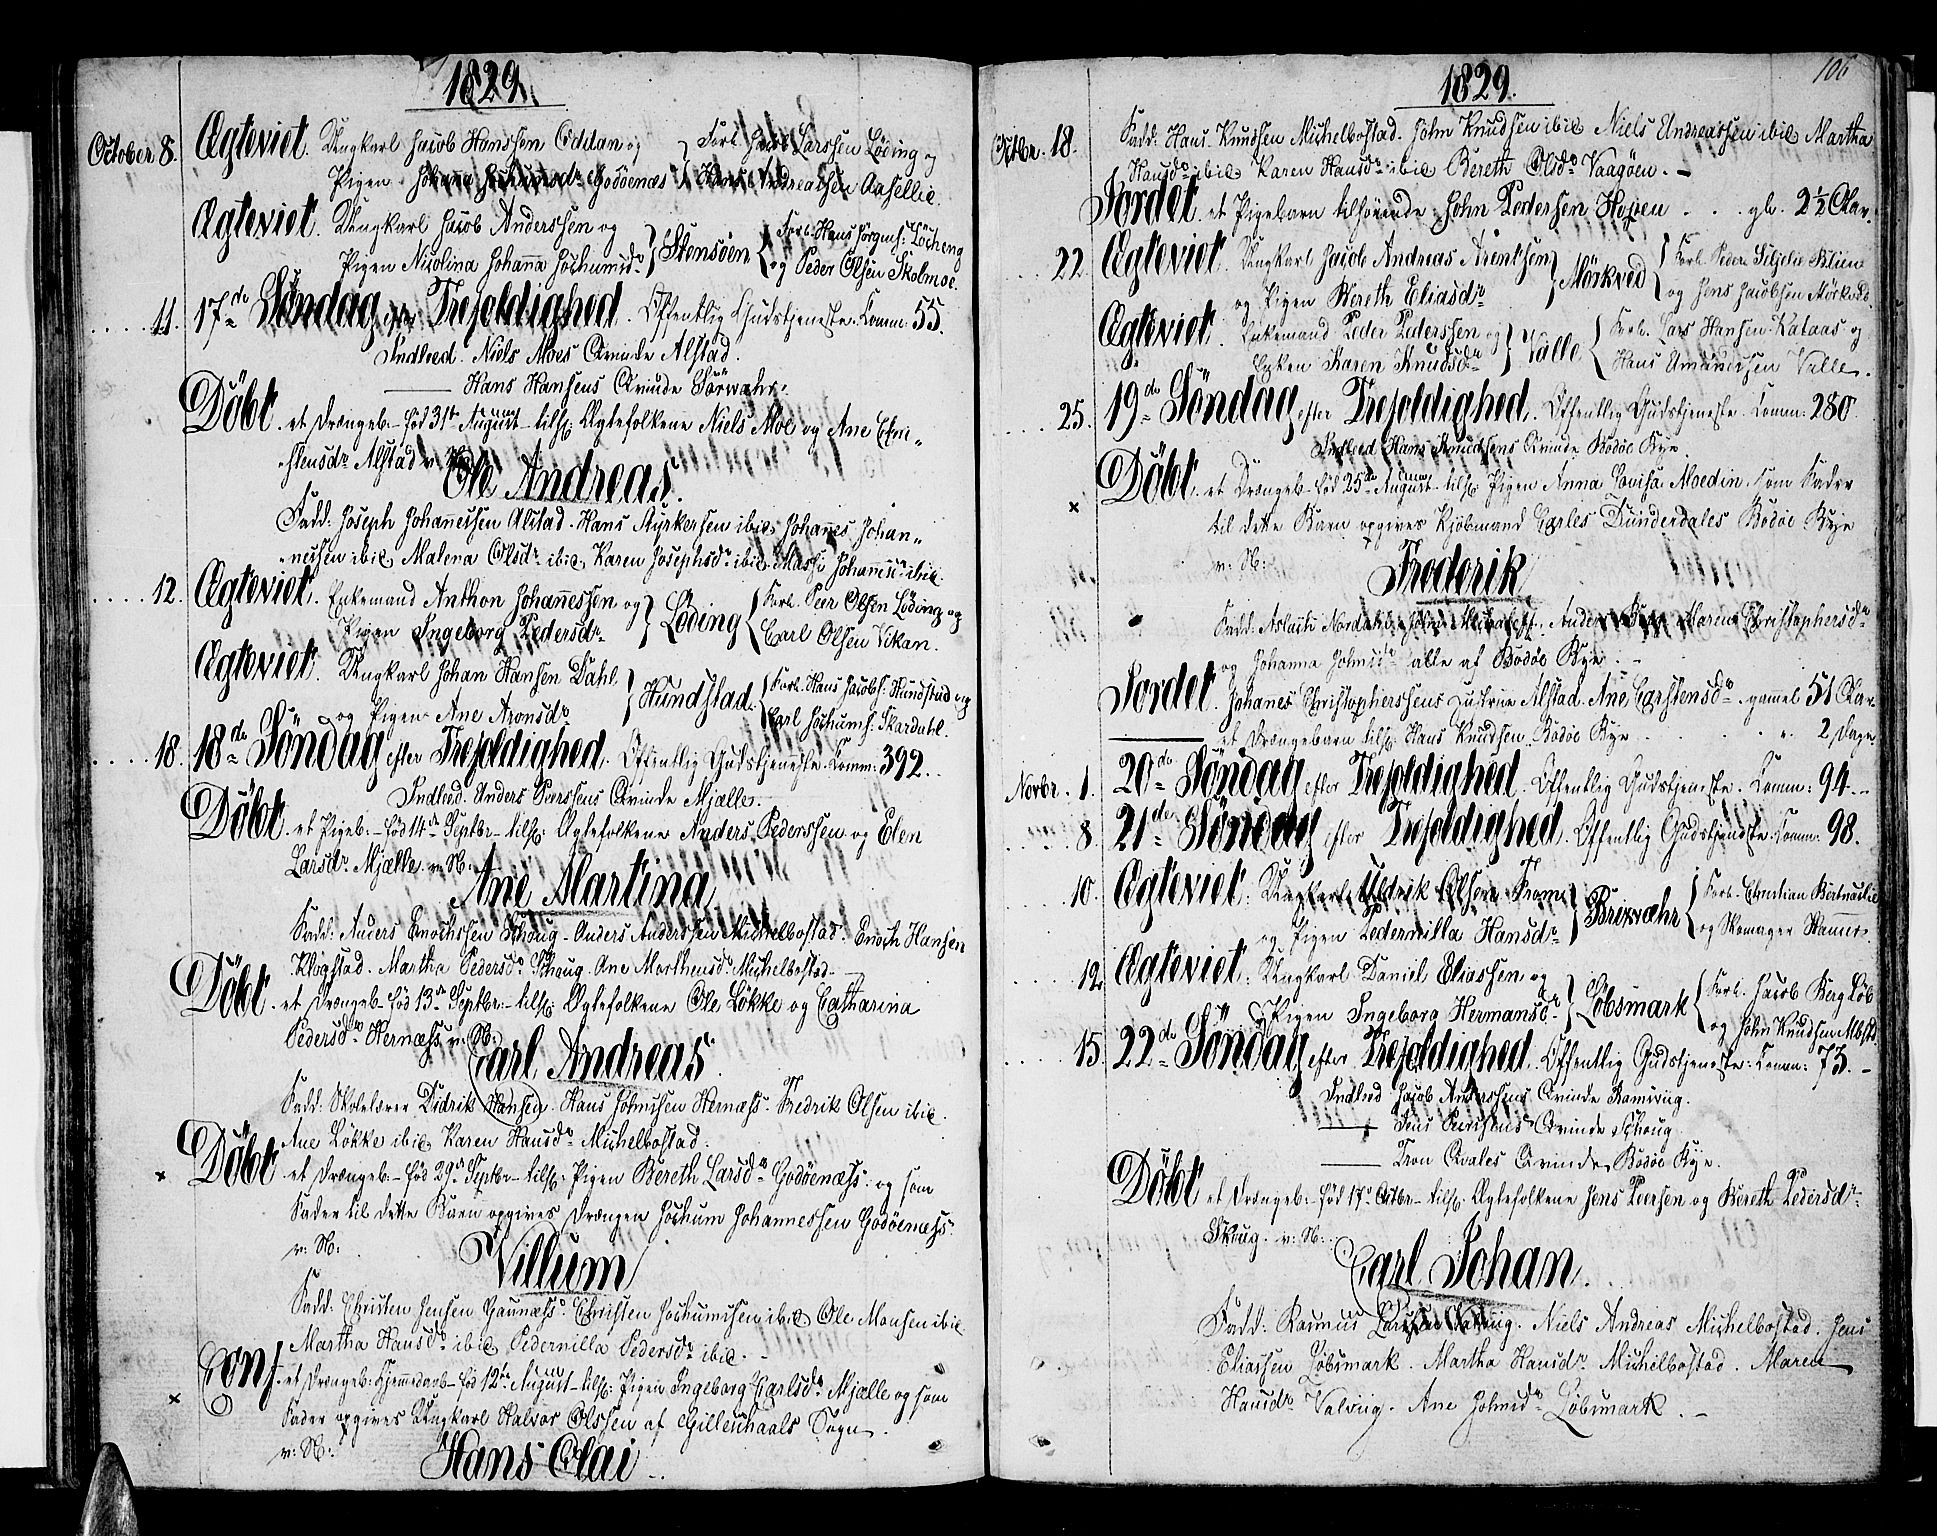 1829.
October 8. Ægteviet. Ungkarl Jacob Hanssen Oddan og } Forl. Jacob Larssen Løding og
Pigen Johana Jochumsdr Godøenæs } Hans Andreassen Aasellie.
Ægteviet. Ungkarl Jacob Anderssen og
Pigen Nicolina Johanna Jochumsdr } Stensøen { Forl. Hans Jörgens: Löcheng
og Peder Olsen Skolmoe.
11. 17de Söndag efter Trefoldighed. Offentlig Gudstjeneste. Comm: 55.
Indleed. Niels Moes Qvinde Alstad.
—— Hans Hansens Qvinde Sörwahr.
Döbt et Drængeb. född 31te August tilh: Ægtefolkene Niels Moe og Ane Chri-
stensdr Alstad v: N:
Ole Andreas.
Fadd: Joseph Johanessen Alstad. Hans Styrkersen ibid. Johanes Johan-
nessen ibid. Malena Olsdr ibid. Karen Josephsdr ibid. Massi Johannsdr ibid.
12. Ægteviet. Enkemand Anthon Johanessen og } Löding { Forl. Peer Olsen Löding og
Pigen Ingeborg Pedersdr } Carl Olsen Vikan.
Ægteviet. Ungkarl Johan Hansen Dahl
og Pigen Ane Aronsdr } Hundstad { Forl. Hans Jacobs: Hundstad og
Carl Jochums: Skardahl.
18. 18de Söndag efter Trefoldighed. Offentlig Gudstjeneste. Comm: 392.
Indleed. Anders Peerssens Qvinde Mjælle.
Döbt et Pigeb: född 14de Septbr tilh: Ægtefolkene Anders Pederssen og Elen
Larsdr Mjælle v: N:
Ane Martina
Fadd: Anders Enochssen Schoug. Anders Anderssen Michelbostad. Enoch Hansen
Klogstad. Martha Pedersdr Schoug. Ane Marthensdr Michelbostad.
Döbt et Drængeb. född 13de Septbr: tilh: Ægtefolkene Ole Lökke og Catharina
Pedersdr Hernæss v: N:
Carl Andreas.
Fadd: Skolelærer Didrik Hansen. Hans Johnssen Hernæss. Fredrik Olsen ibid.
Ane Lökke ibid. Karen Hansdr Michelbostad.
× Döbt et Drængeb: född 29de Septbr tilh: Pigen Bereth Larsdr Godöenæss: og som
Fader til dette Barn opgives Drængen Jochum Johannessen Godöenæss.
v: N:
Villum
Fadd: Christen Jensen Gaunæss. Christen Jochumssen ibid. Ole Monsen ibid
Martha Hansdr ibid. Pedernilla Pedersdr ibid.
× Conf. et Drængeb: hjemmedöbt född 12te August tilh: Pigen Ingeborg Carlsdr Mjælle og som
Fader opgives Ungkarl Halvor Olssen af Gilleschaals Sogn.
v: N:
Hans Olai
106
1829.
Octbr. 18. Fadd: Hans Knudssen Michelbostad. John Knudsen ibid. Niels Andreassen ibid. Martha
Hansdr ibid. Karen Hansdr ibid. Bereth Olsdr Vaagöen.
Jordet et Pigebarn tilhörende John Pedersen Hopen . . . gl. 2½ Aar.
22. Ægteviet. Ungkarl Jacob Andreas Arentsen
og Pigen Bereth Eliasdr } Mörkved { Forl. Peder Siljelie
og Jens Jacobsen Mörkved.
Ægteviet. Enkemand Peder Pederssen og
Enken Karen Knudsdr } Valle { Forl. Lars Hansen Kataas og
Hans Amundssen Valle.
25. 19de Söndag efter Trefoldighed. Offentlig Gudstjeneste. Comm: 280.
Indleed Hans Knudssens Qvinde Bodöe Bye.
× Döbt et Drængeb. född 25de August tilh: Pigen Anna Lovisa Moedin. som Fader
til dette Barn opgives Kjöbmand Carles Dunderdales Bodöe Bye
v: N:
Frederik
Fadd: Maren Christophersdr
og Johanna Johnsdr alle af Bodöe Bye.
Jordet. Johanes Christopherssens Hustrue Alstad Ane Carstensdr gamel 51 Aar.
—— et Drængebarn tilh: Hans Knudsen Bodöe Bye . . . 2 Dage.
Novbr. 1. 20de Söndag efter Trefoldighed. Offentlig Gudstjeneste. Comm: 94.
8. 21de Söndag efter Trefoldighed. Offentlig Gudstjeneste Comm: 98.
10. Ægteviet. Ungkarl Uldrik Olsen From
og Pigen Pedernilla Hansdr } Brixwahr { Forl. Christian
og Skomager Hammer.
12. Ægteviet. Ungkarl Daniel Eliassen og
Pigen Ingeborg Hermansdr } Löbsmark { Forl. Jacob Berg Löb
og John Knudsen Mbstd.
15. 22de Söndag efter Trefoldighed. Offentlig Gudstjeneste. Comm: 73.
Indleed Jacob Anderssens Qvinde Ramsvig.
—— Jens Peersens Qvinde Schoug.
—— Tron Qvales Qvinde Bodöe Bye.
Döbt et Drængeb: född 17de Octbr tilh: Ægtefolkene Jens Peersen og Bereth Pedersdr
Skoug. v: N:
Carl Johan.
Fadd: Rasmus Valvig. Niels Andreas Michelbostad. Jens
Eliassen Löbsmark. Martha Hansdr Michelbostad. Maren
Hansdr Valvig. Ane Johnsdr Löbsmark.